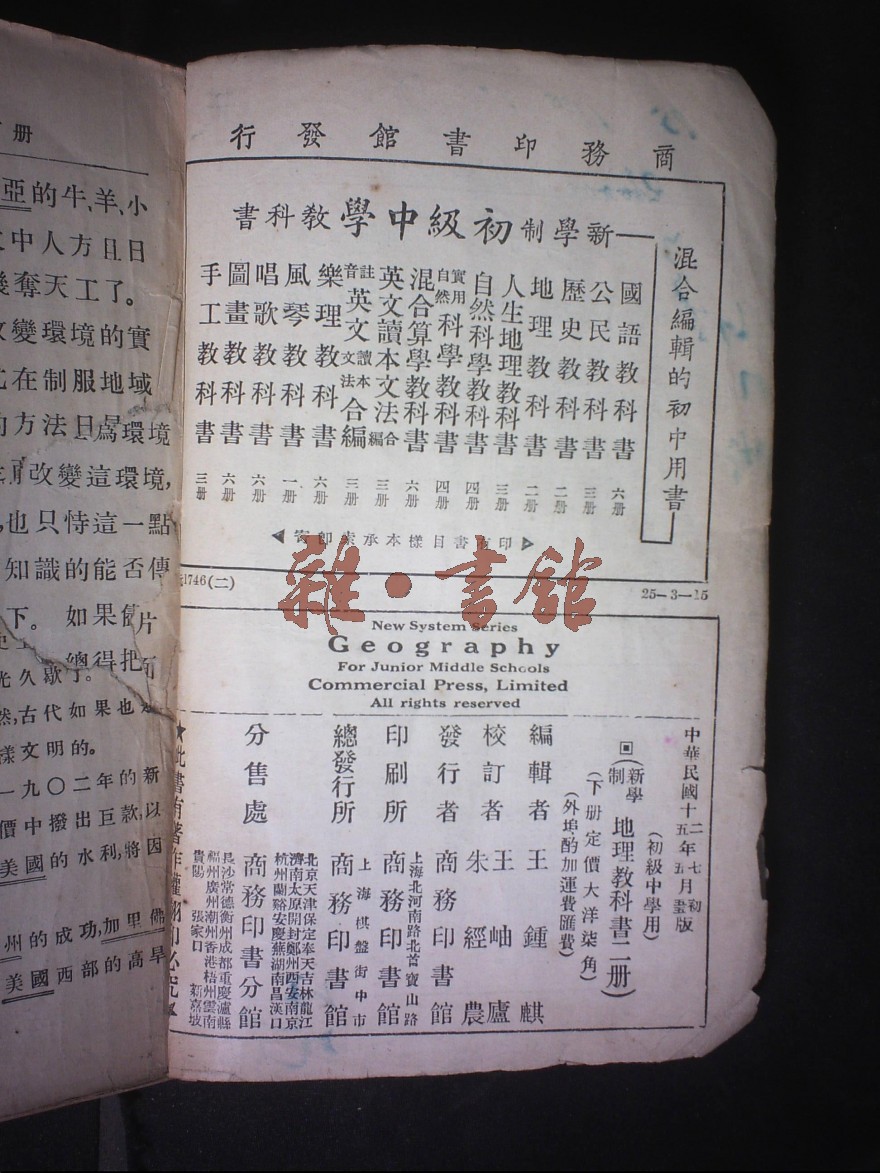 册
亞的牛、羊、小
中人方且日
奪天工了。
改變環境的實
在制服地域
的方法日爲環境
改變這環境，
也只恃這一點
知識的能否傳
下。如果
片
光久歇了。
總得把
然，古代如果也
樣文明的。
一九〇二年的新
價中撥出巨款，以
美國的水利，將因
州的成功，加里佛
美國西部的高旱
商務印書館發行
混合編輯的初中用書
新學制初級中學教科書
國語教科書 六册
公民教科書 三册
歷史教科書 二册
地理教科書 二册
人生地理教科書 三册
自然科學教科書 四册
實用自然科學教科書 四册
混合算學教科書 六册
英文讀本文法合編 三册
註音英文讀本文法合編 三册
樂理教科書 六册
風琴教科書 一册
唱歌教科書 六册
圖畫教科書 六册
手工教科書 三册
印有書目樣本承索即寄
1746(二)
25-3-15
雜·書館
New System Series
Geography
For Junior Middle Schools
Commercial Press, Limited
All rights reserved
中華民國十二年七月初版
五年五月
(初級中學用)
(新學制地理教科書二册)
(下册定價大洋柒角)
(外埠酌加運費匯費)
編輯者 王鍾麒
校訂者 王岫廬
朱經農
發行者 商務印書館
上海北河南路北首寶山路
印刷所 商務印書館
上海棋盤街中市
總發行所 商務印書館
北京天津保定奉天吉林龍江
濟南太原開封鄭州西安南京
杭州蘭谿安慶蕪湖南昌漢口
分售處 商務印書分館
長沙常德衡州成都重慶瀘縣
福州廣州潮州香港梧州雲南
貴陽 張家口 新嘉坡
★此書有著作權翻印必究★